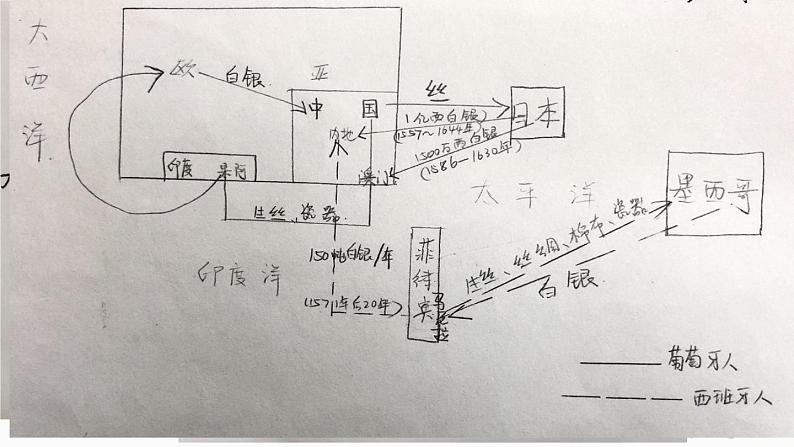 大西洋
欧
白银
亚
中国
丝
日本
1亿两白银
(1557~1644年)
内地
1500万两白银
(1586—1630年)
印度
果阿
澳门
生丝、瓷器
太平洋
墨西哥
生丝、丝绸、棉布、瓷器
白银
150吨白银/年
(1571年后20年)
印度洋
菲律宾
马尼拉
葡萄牙人
西班牙人